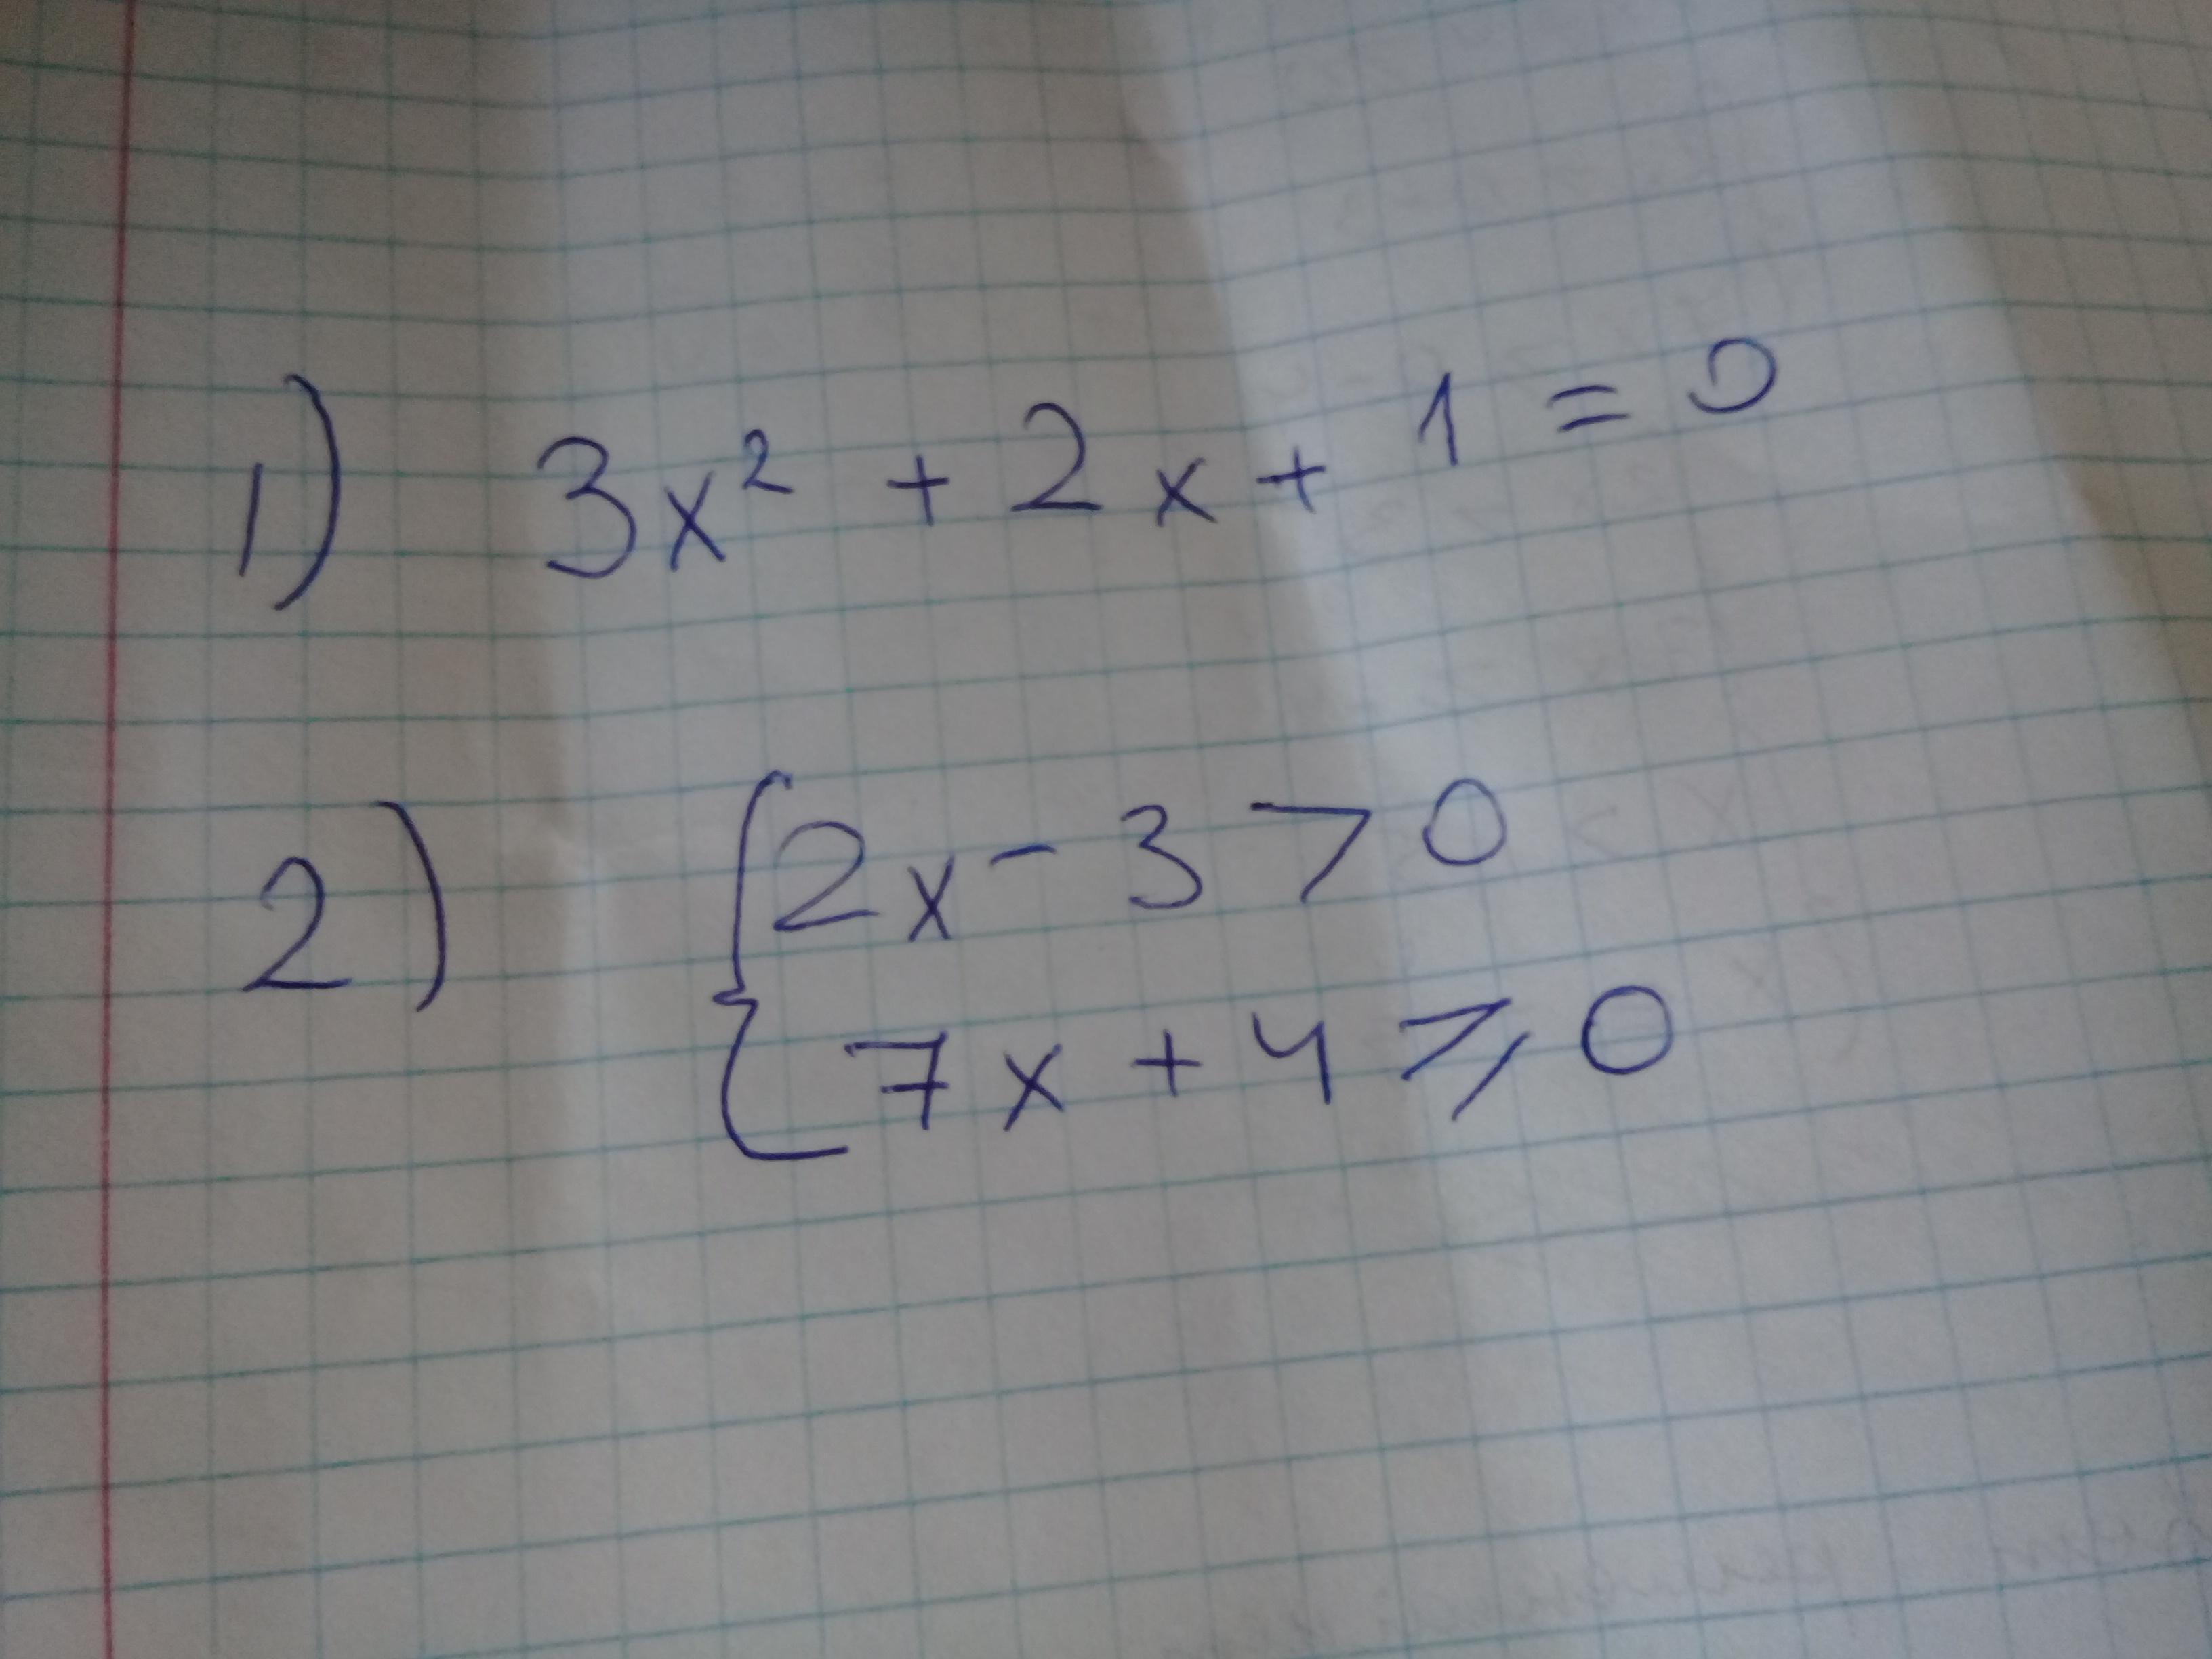 1) 3x² + 2x + 1 = 0
2) { 2x - 3 > 0
7x + 4 ⩾ 0